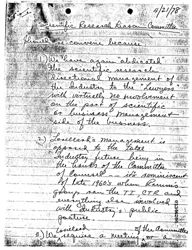 4/21/78
Scientific Research Liaison Committee
convene because
1) We have again "abdicated"
the scientific research
directional management of
the industry to the "Lawyers"
with virtually no involvement
on the part of scientific
or business management
side of the business.
2) Lorillard's management is
opposed to the total
industry future being
in the hands of the Committee
of Counsel - it's reminiscent
of late 1960's when
ran the TI, CTR and
everything else involved
with industry's public
posture.
3) Lorillard of the Committee